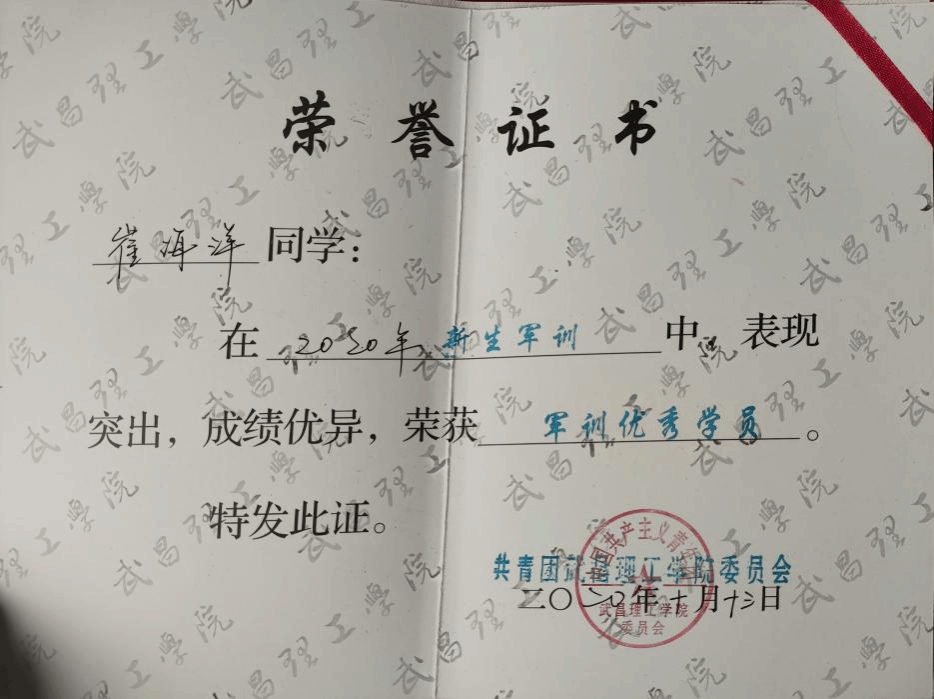 荣誉证书
崔海洋同学：
在2020年新生军训中，表现
突出，成绩优异，荣获军训优秀学员。
特发此证。
共青团武昌理工学院委员会
二〇二〇年十月十三日
中国共产主义青年团
武昌理工学院
委员会
武昌理工学院